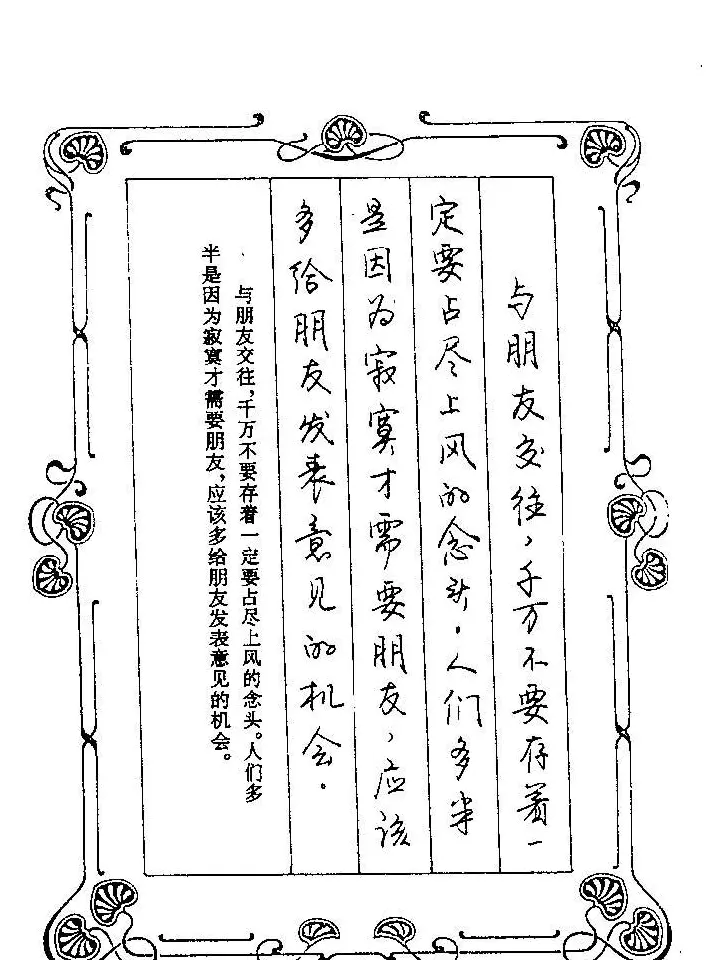 与朋友交往，千万不要存着一
定要占尽上风的念头。人们多半
是因为寂寞才需要朋友，应该
多给朋友发表意见的机会。
与朋友交往，千万不要存着一定要占尽上风的念头。人们多
半是因为寂寞才需要朋友，应该多给朋友发表意见的机会。